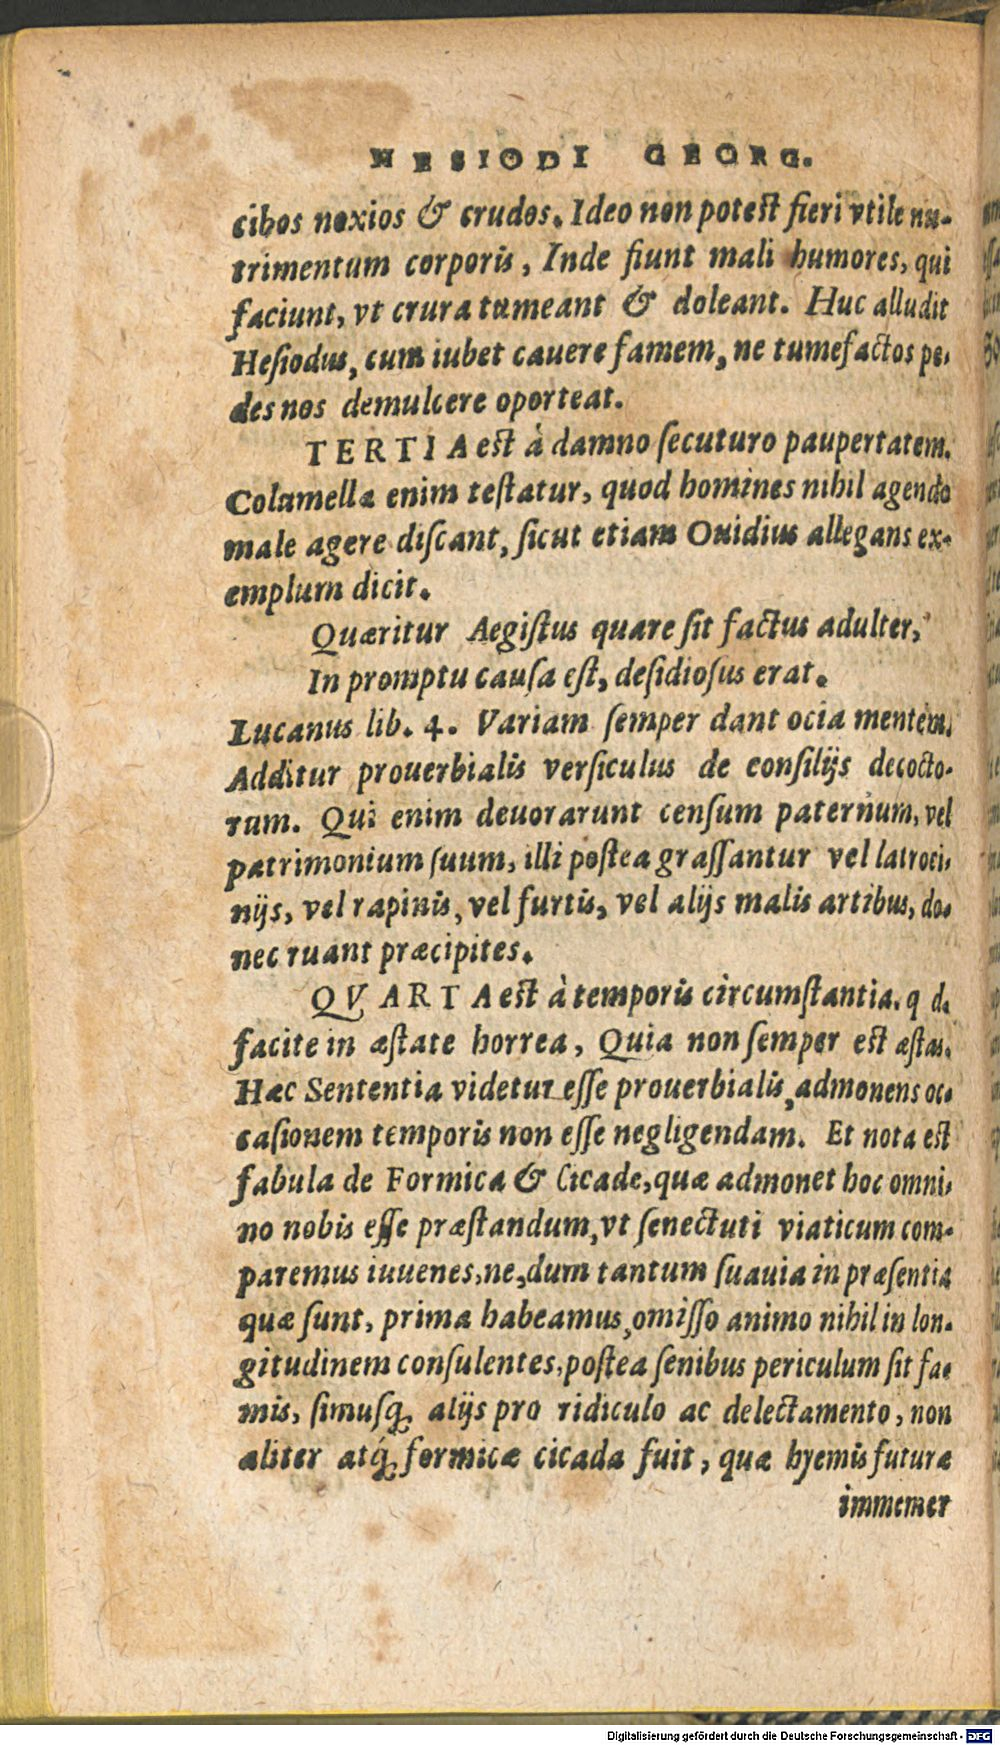 HESIODI GEORG.
cibos noxios & crudos. Ideo non potest fieri vtile nu-
trimentum corporis, Inde fiunt mali humores, qui
faciunt, vt crura tumeant & doleant. Huc alludit
Hesiodus, cum iubet cauere famem, ne tumefactos pe-
des nos demulcere oporteat.
TERTIA est à damno secuturo paupertatem.
Columella enim testatur, quod homines nihil agendo
male agere discant, sicut etiam Ouidius allegans ex-
emplum dicit.
Quæritur Aegistus quare sit factus adulter,
In promptu causa est, desidiosus erat.
Lucanus lib. 4. Variam semper dant ocia mentem.
Additur prouerbialis versiculus de consilijs decocto-
rum. Qui enim deuorarunt censum paternum, vel
patrimonium suum, illi postea grassantur vel latroci-
nijs, vel rapinis, vel furtis, vel alijs malis artibus, do-
nec ruant præcipites.
QVARTA est à temporis circumstantia. q d.
facite in æstate horrea, Quia non semper est æstas.
Hæc Sententia videtur esse prouerbialis, admonens oc-
casionem temporis non esse negligendam. Et nota est
fabula de Formica & Cicade, quæ admonet hoc omni-
no nobis esse præstandum, vt senectuti viaticum com-
paremus iuuenes, ne, dum tantum suauia in præsentia
quæ sunt, prima habeamus, omisso animo nihil in lon-
gitudinem consulentes, postea senibus periculum sit fa-
mis, simusq; alijs pro ridiculo ac delectamento, non
aliter atq; formicæ cicada fuit, quæ hyemis futuræ
immemor
Digitalisierung gefördert durch die Deutsche Forschungsgemeinschaft - DFG